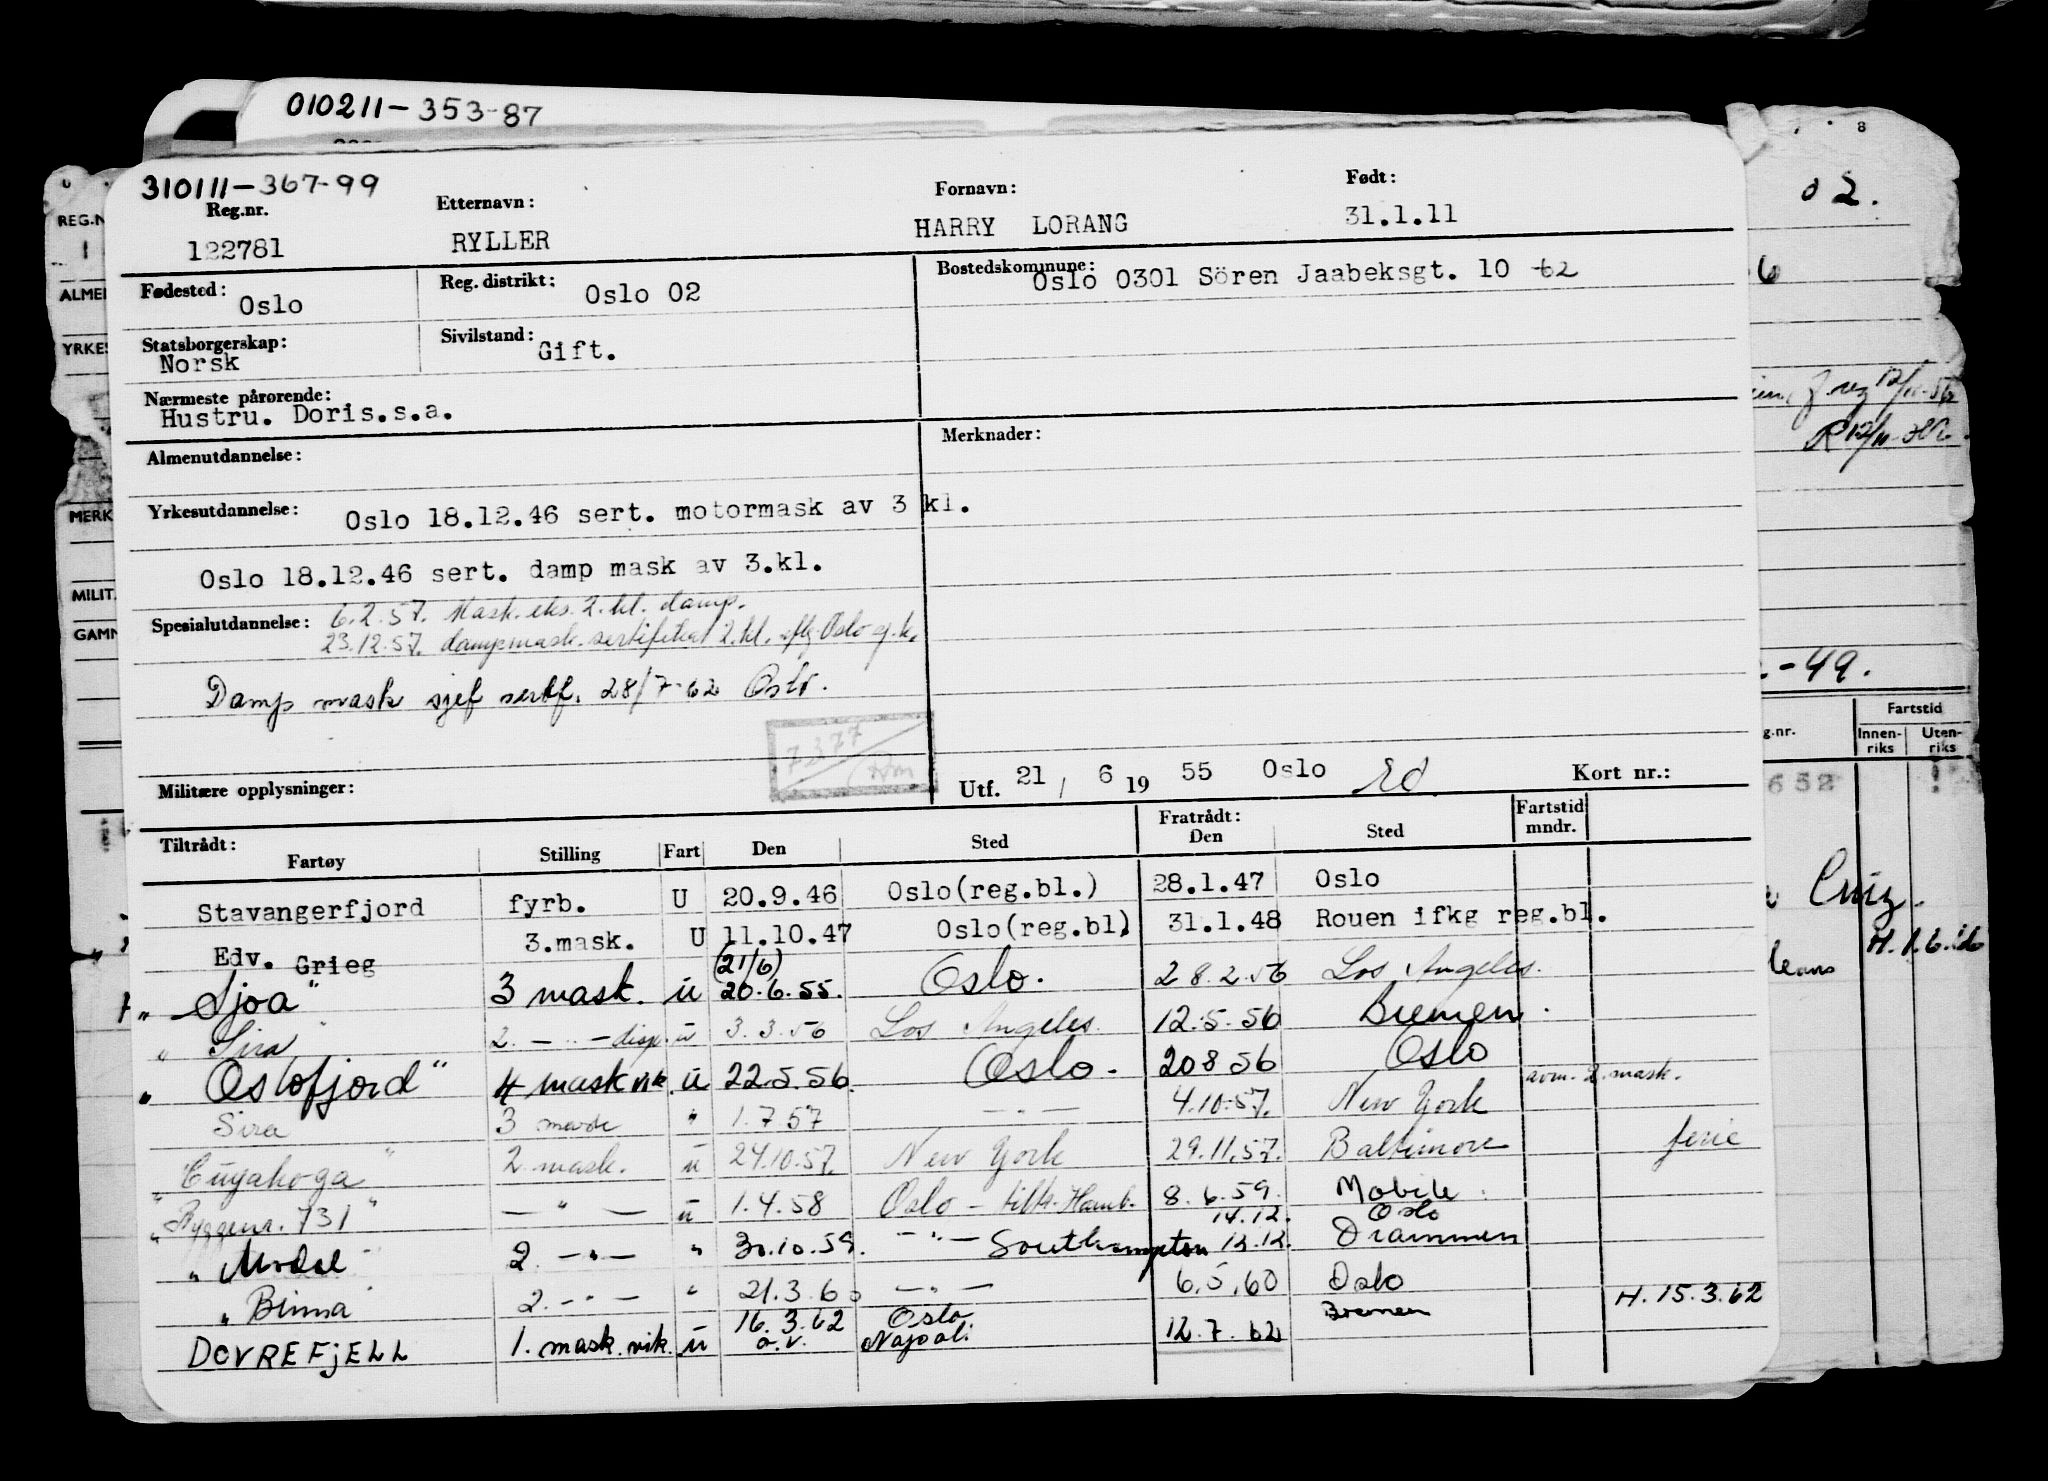 010211-353-87
8
310111-367-99
Reg.nr. Etternavn: Fornavn: Født:
122781 RYLLER HARRY LORANG 31.1.11
02.
REG.N
Fødested: Oslo Reg. distrikt: Oslo 02 Bostedskommune: Oslo 0301 Sören Jaabeksgt. 10 -62
ALMEN
6
Statsborgerskap: Norsk Sivilstand: Gift.
YRKES
Nærmeste pårørende:
Hustru. Doris.s.a.
Almenutdannelse: Merknader:
Yrkesutdannelse: Oslo 18.12.46 sert. motormask av 3 kl.
MERK
Oslo 18.12.46 sert. damp mask av 3.kl.
MILIT.
Spesialutdannelse: 6.2.57. Mask. eks. 2. kl. damp.
23.12.57. dampmask. sertifikat 2. kl. Oslo
GAMM
-49.
Damp mask sjef sertf. 28/7-62 Oslo.
7377
Militære opplysninger: Utf. 21 / 6 19 55 Oslo Kort nr.:
Fartstid
g.nr. Innen-riks Uten-riks
652
Tiltrådt: Fratrådt: Fartstid mndr.
Fartøy Stilling Fart Den Sted Den Sted
Stavangerfjord fyrb. U 20.9.46 Oslo(reg.bl.) 28.1.47 Oslo
Edv. Grieg 3.mask. U 11.10.47 Oslo(reg.bl) 31.1.48 Rouen ifkg reg.bl.
"Sjoa" 3 mask. u (21/6) 20.6.55. Oslo. 28.2.56 Los Angeles.
H. 1.6.
"Sira" 2. - " - disp. u 3.3.56 Los Angeles. 12.5.56 Bremen.
"Oslofjord" 4 mask vik. u 22.5.56. Oslo. 20 8 56 Oslo
Sira 3 mask " 1.7 57 - " - 4.10.57. New York avm. 2. mask.
"Cuyahoga" 2 mask. u 24.10.57. New York 29.11.57. Baltimore ferie
"Byggenr. 731" - " - u 1.4.58 Oslo - tiltr. Hamb. 8.6.59. Mobile.
14.12. Oslo
"Modal" 2. - " - " 30.10.59. - " - Southampton 12.12. Drammen
"Binna" 2. - " - " 21.3.60 - " - 6.5.60 Oslo
DOVREFJELL 1. mask. vik. u 16.3.62 Oslo 12.7.62 Bremen H. 15.3.62